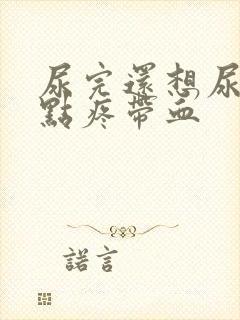 尿完還想尿
點疼帶血
諾言